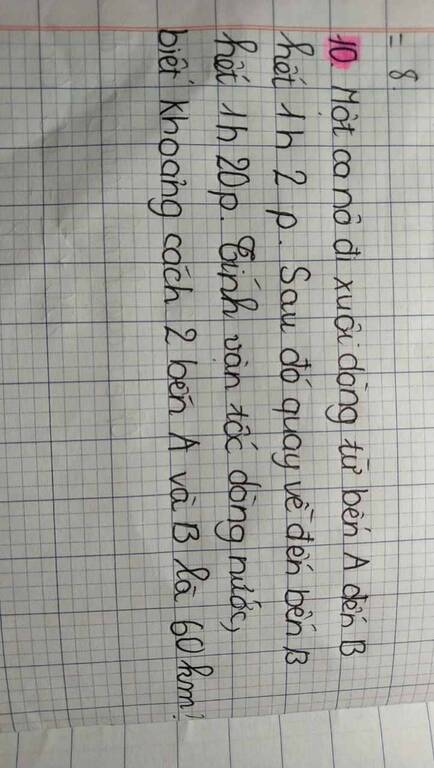 = 8.
10. Một ca nô đi xuôi dòng từ bến A đến B
hết 1h 2 p. Sau đó quay về đến bến B
hết 1h 20p. Tính vận tốc dòng nước,
biết khoảng cách 2 bến A và B là 60km?